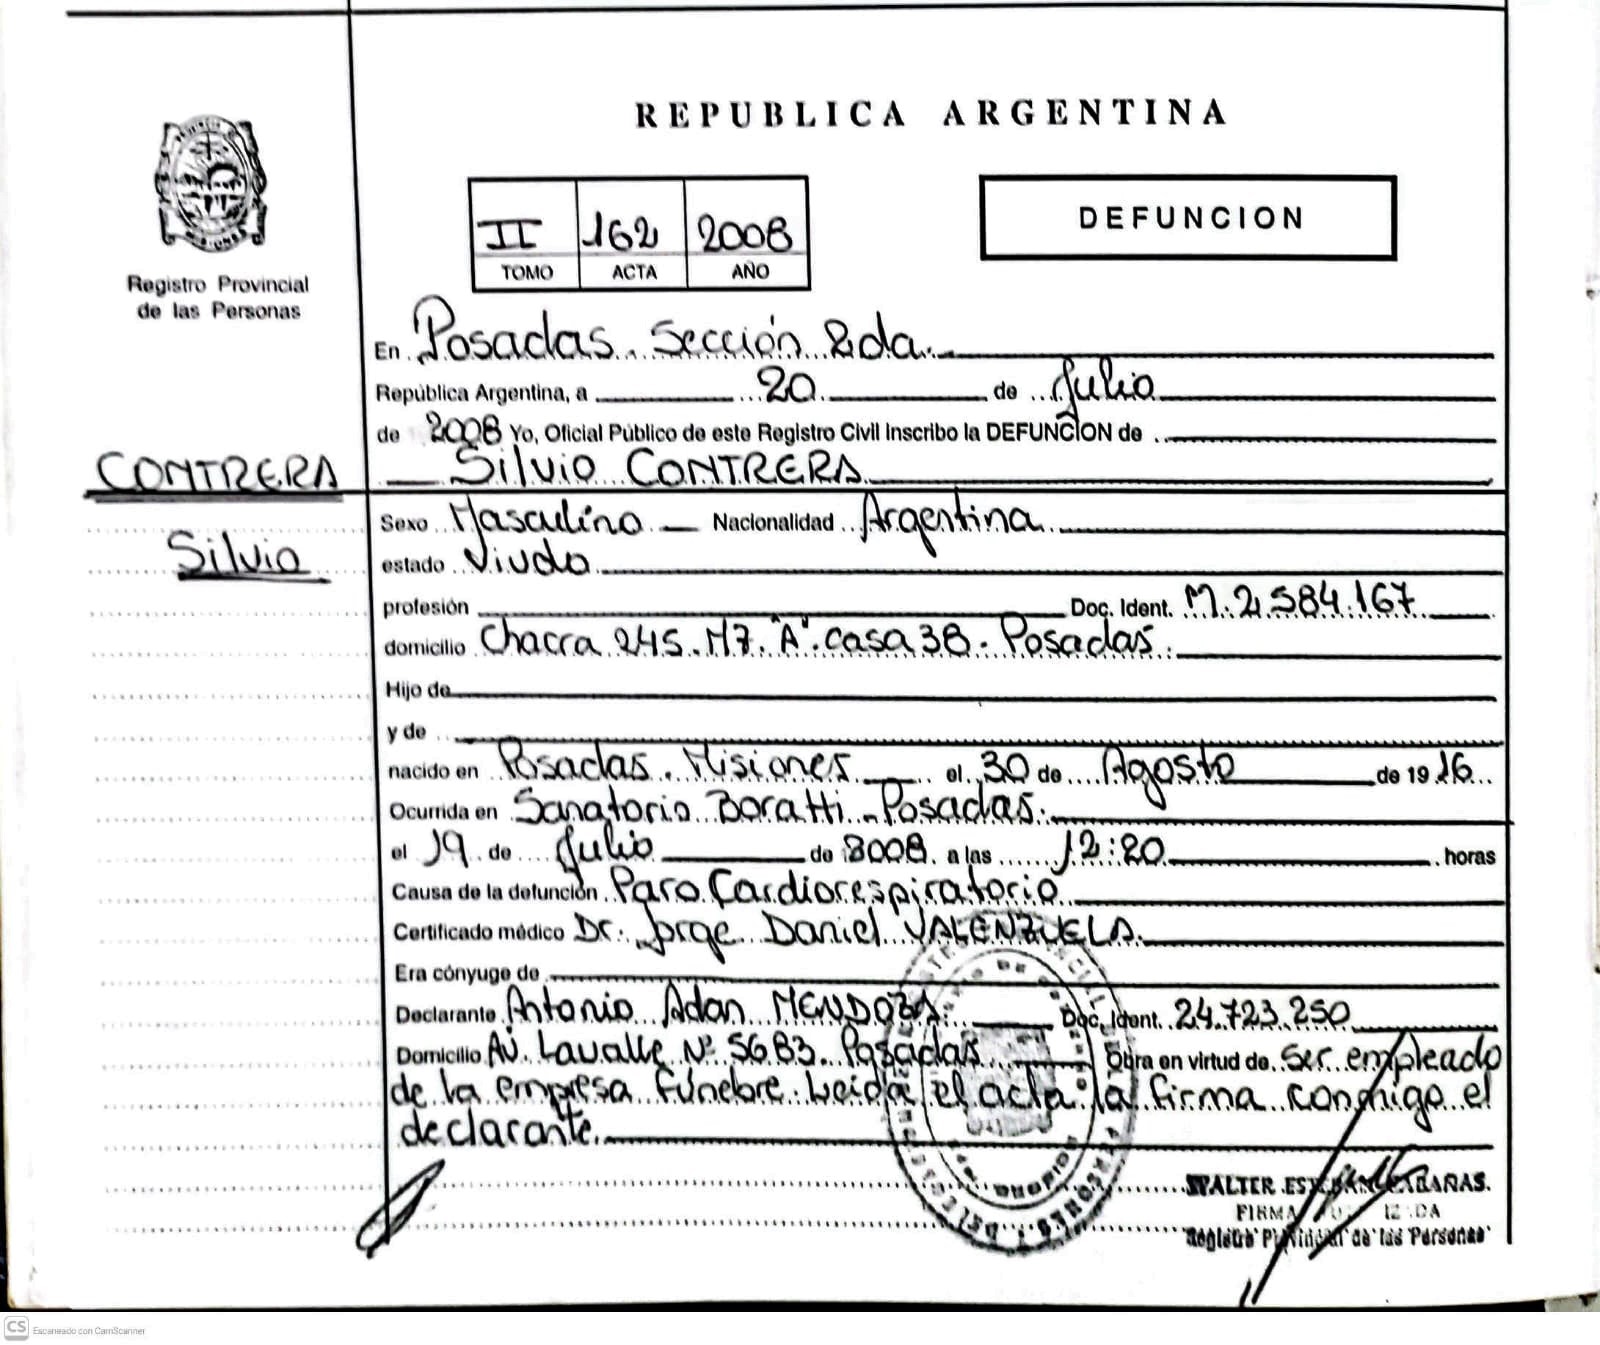 REPUBLICA ARGENTINA
DEFUNCION
II 162 2008
TOMO ACTA AÑO
Registro Provincial
de las Personas
En Posadas. Sección 2da.
República Argentina, a 20 de Julio
de 2008 Yo, Oficial Público de este Registro Civil Inscribo la DEFUNCION de
CONTRERA
Silvio CONTRERA
Silvio
Sexo Masculino Nacionalidad Argentina
estado Viudo
profesión Doc. Ident. M. 2.584.167
domicilio Chacra 245. M7. "A". casa 38. Posadas.
Hijo de
y de
nacido en Posadas. Misiones el 30 de Agosto de 1916
Ocurrida en Sanatorio Boratti - Posadas.
el 19 de Julio de 2008 a las 12:20 horas
Causa de la defunción Paro Cardiorespiratorio
Certificado médico Dr. Jorge Daniel VALENZUELA.
Era cónyuge de
Declarante Antonio Adan MENDOZA. Doc. Ident. 24.723.250
Domicilio Av. Lavalle Nº 5683. Posadas Obra en virtud de Ser empleado
de la empresa Fúnebre. Leida el acta la firma conmigo el
declarante.
WALTER
FIRMA
Registro Provincial de las Personas
CS Escaneado con CamScanner